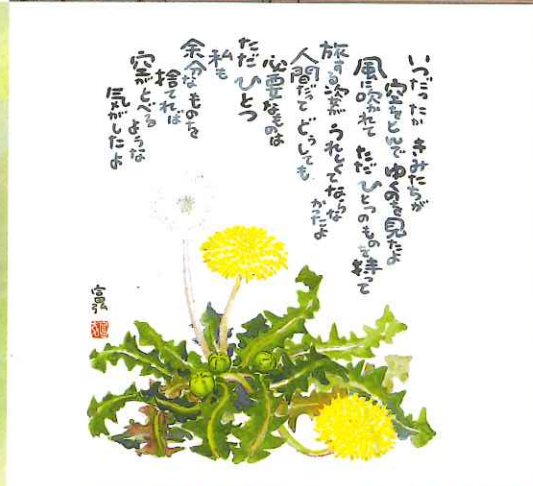 いつだったか きみたちが
空をとんでゆくのを見たよ
風に吹かれて
ただひとつのものを持って
旅する姿が うれしくてならなかったよ
人間だってどうしても
必要なものは
ただひとつ
私も
余分なものを
捨てれば
空がとべるような
気がしたよ
富弘